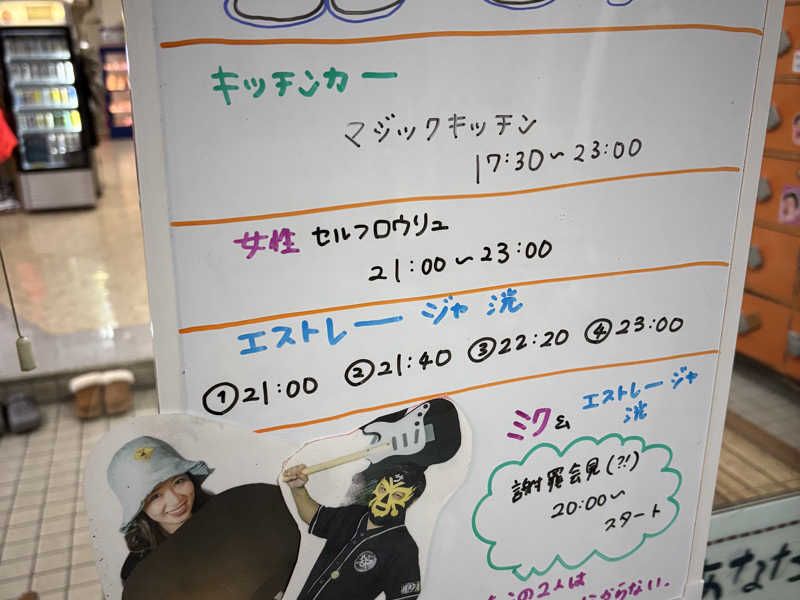 キッチンカー
マジックキッチン
17:30～23:00
女性 セルフロウリュ
21:00～23:00
エストレージャ 洸
①21:00 ②21:40 ③22:20 ④23:00
ミク& エストレージャ
洸
謝罪会見(?!)
20:00～
スタート
この2人は
からない.
あなた